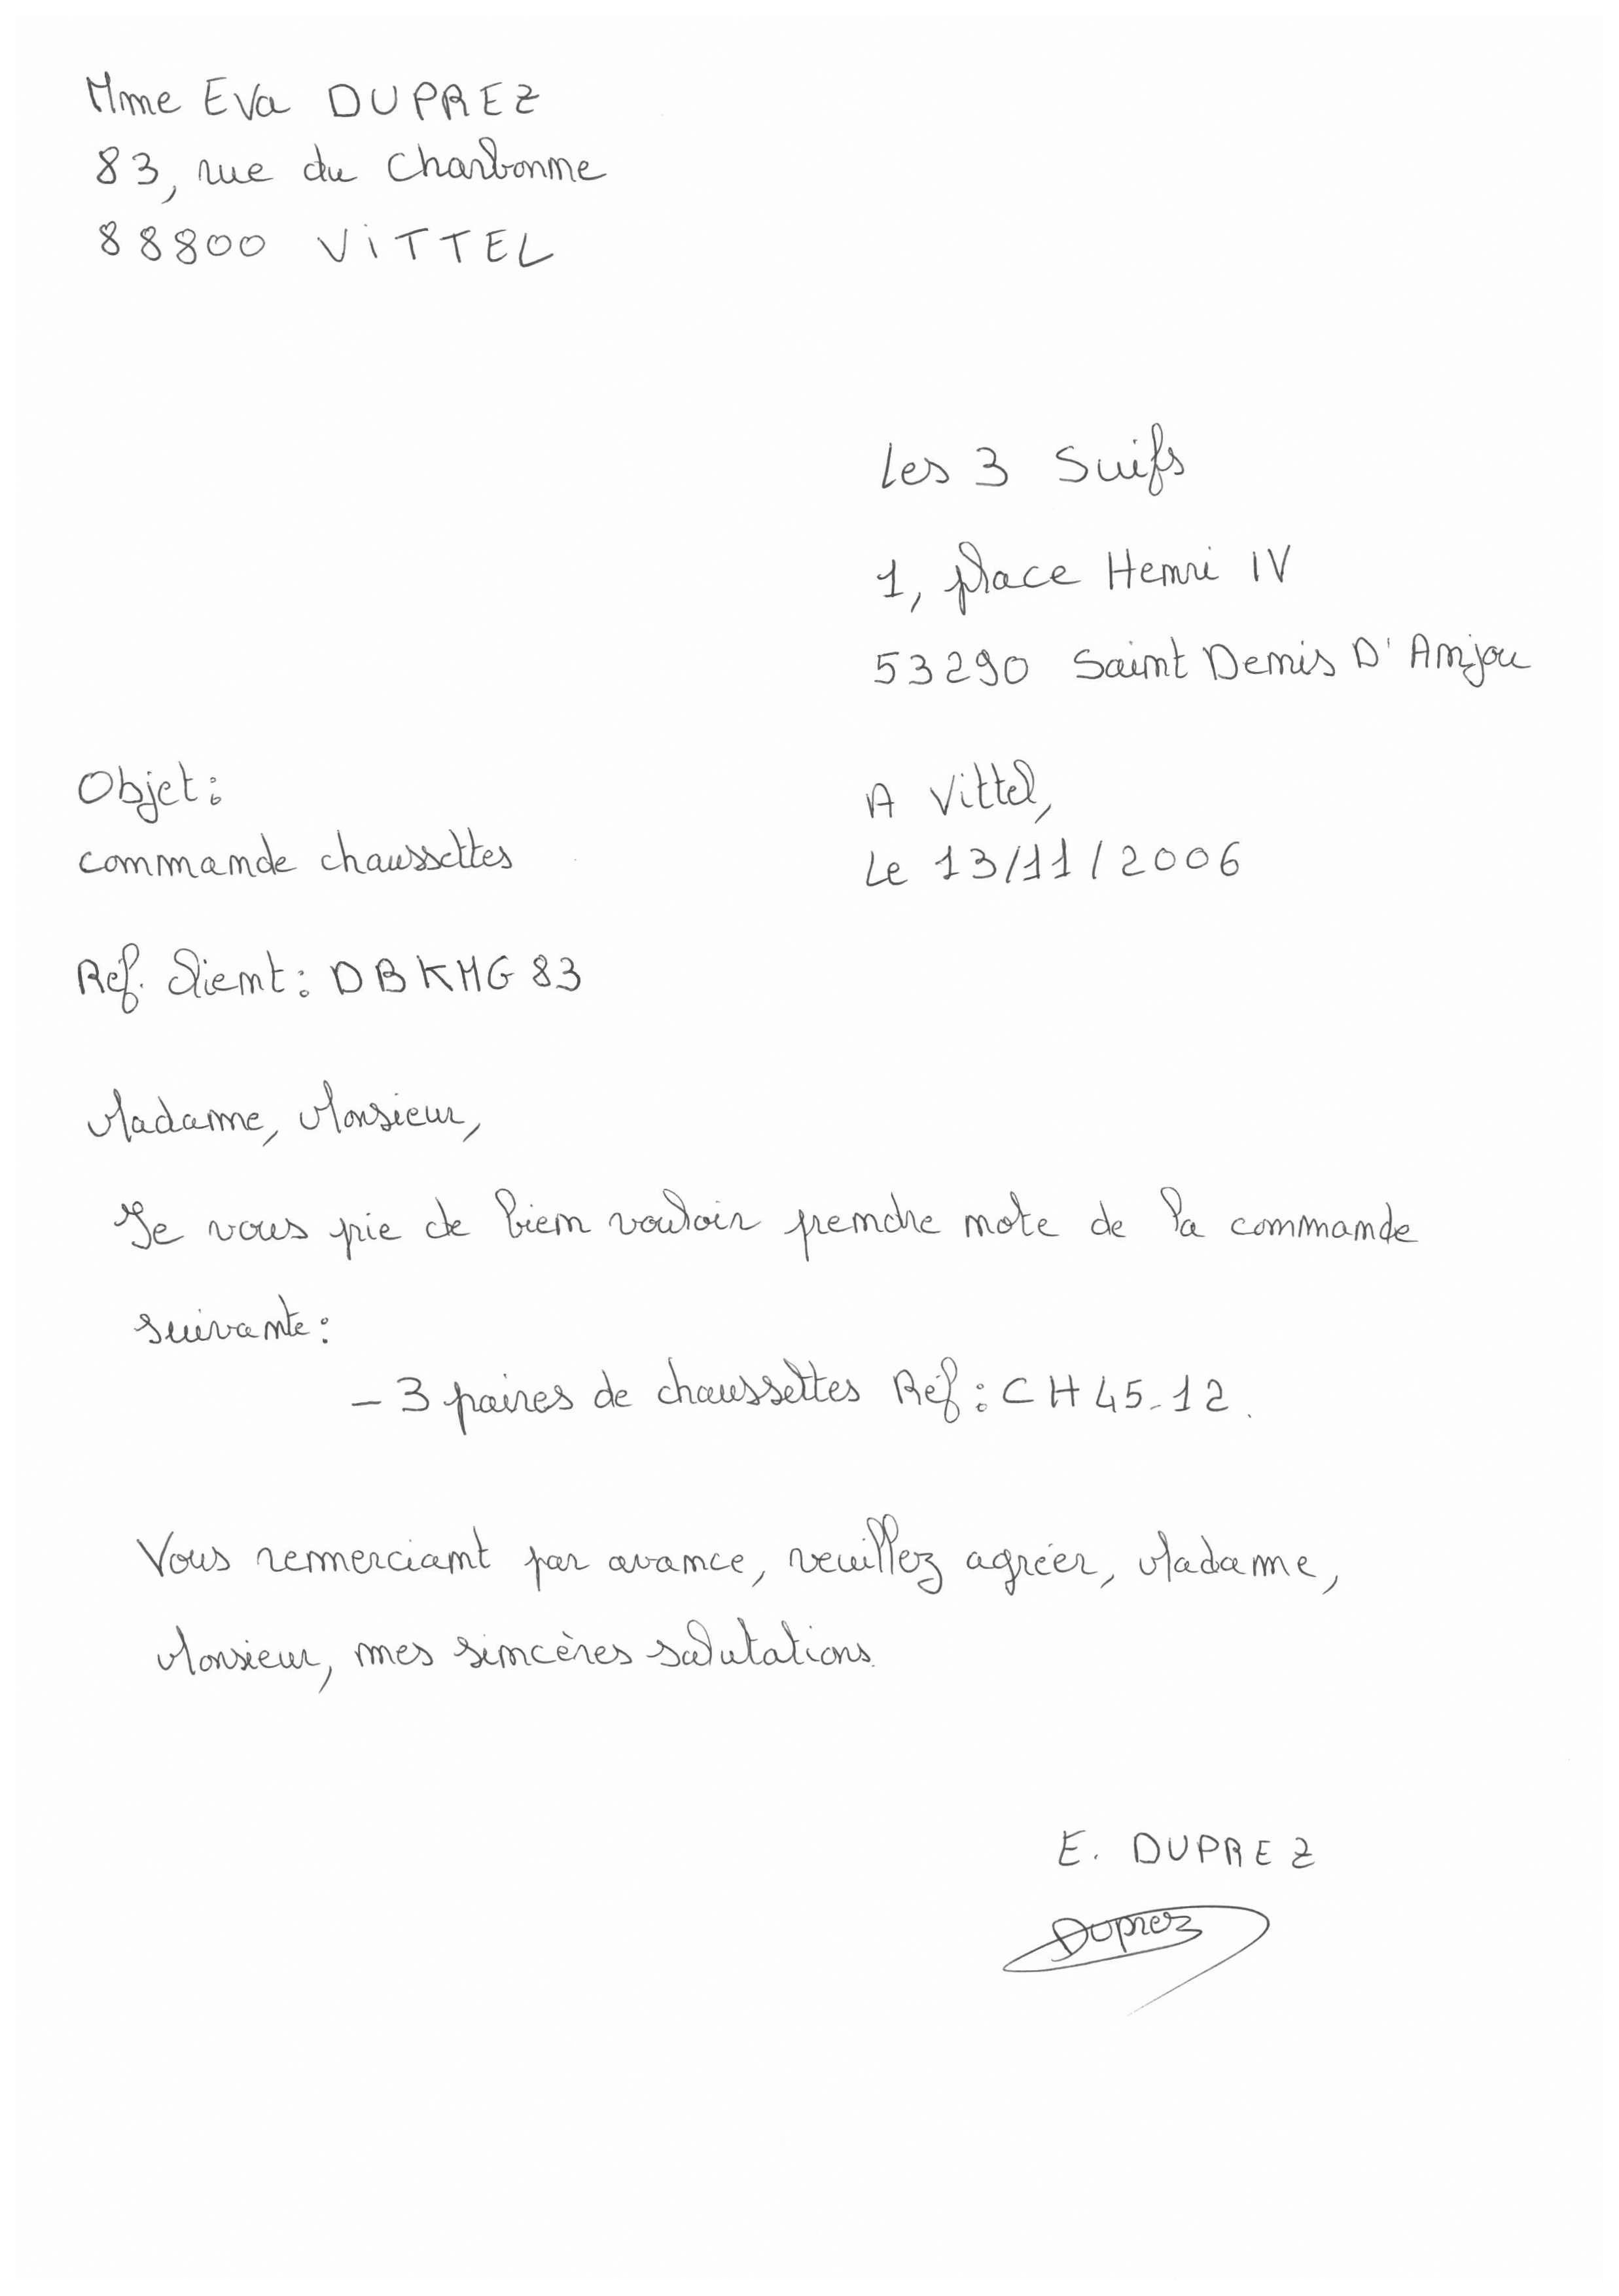 Mme Eva DUPREZ
83, rue du Charbonne
88800 VITTEL
Les 3 Suifs
1, place Henri IV
53290 Saint Denis D'Anjou
Objet :
commande chaussettes
A Vittel,
Le 13/11/2006
Ref. Client : DBKMG 83
Madame, Monsieur,
Je vous prie de bien vouloir prendre note de la commande
suivante :
- 3 paires de chaussettes Réf : CH45-12.
Vous remerciant par avance, veuillez agréer, Madame,
Monsieur, mes sincères salutations.
E. DUPREZ
Duprez